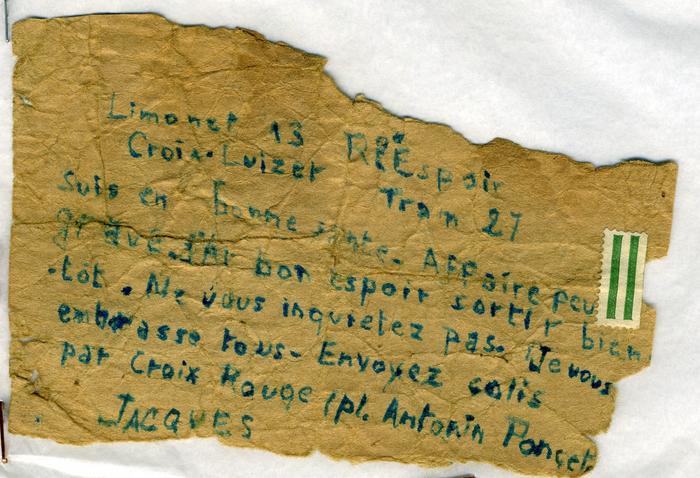 Limonet 13 R. Espoir
Croix-Luizet Tram 27
Suis en bonne santé. Affaire peu
grave. J'ai bon espoir sortir bien
-tôt. Ne vous inquietez pas. Je vous
embrasse tous - Envoyez colis
par Croix Rouge (pl. Antonin Poncet
JACQUES